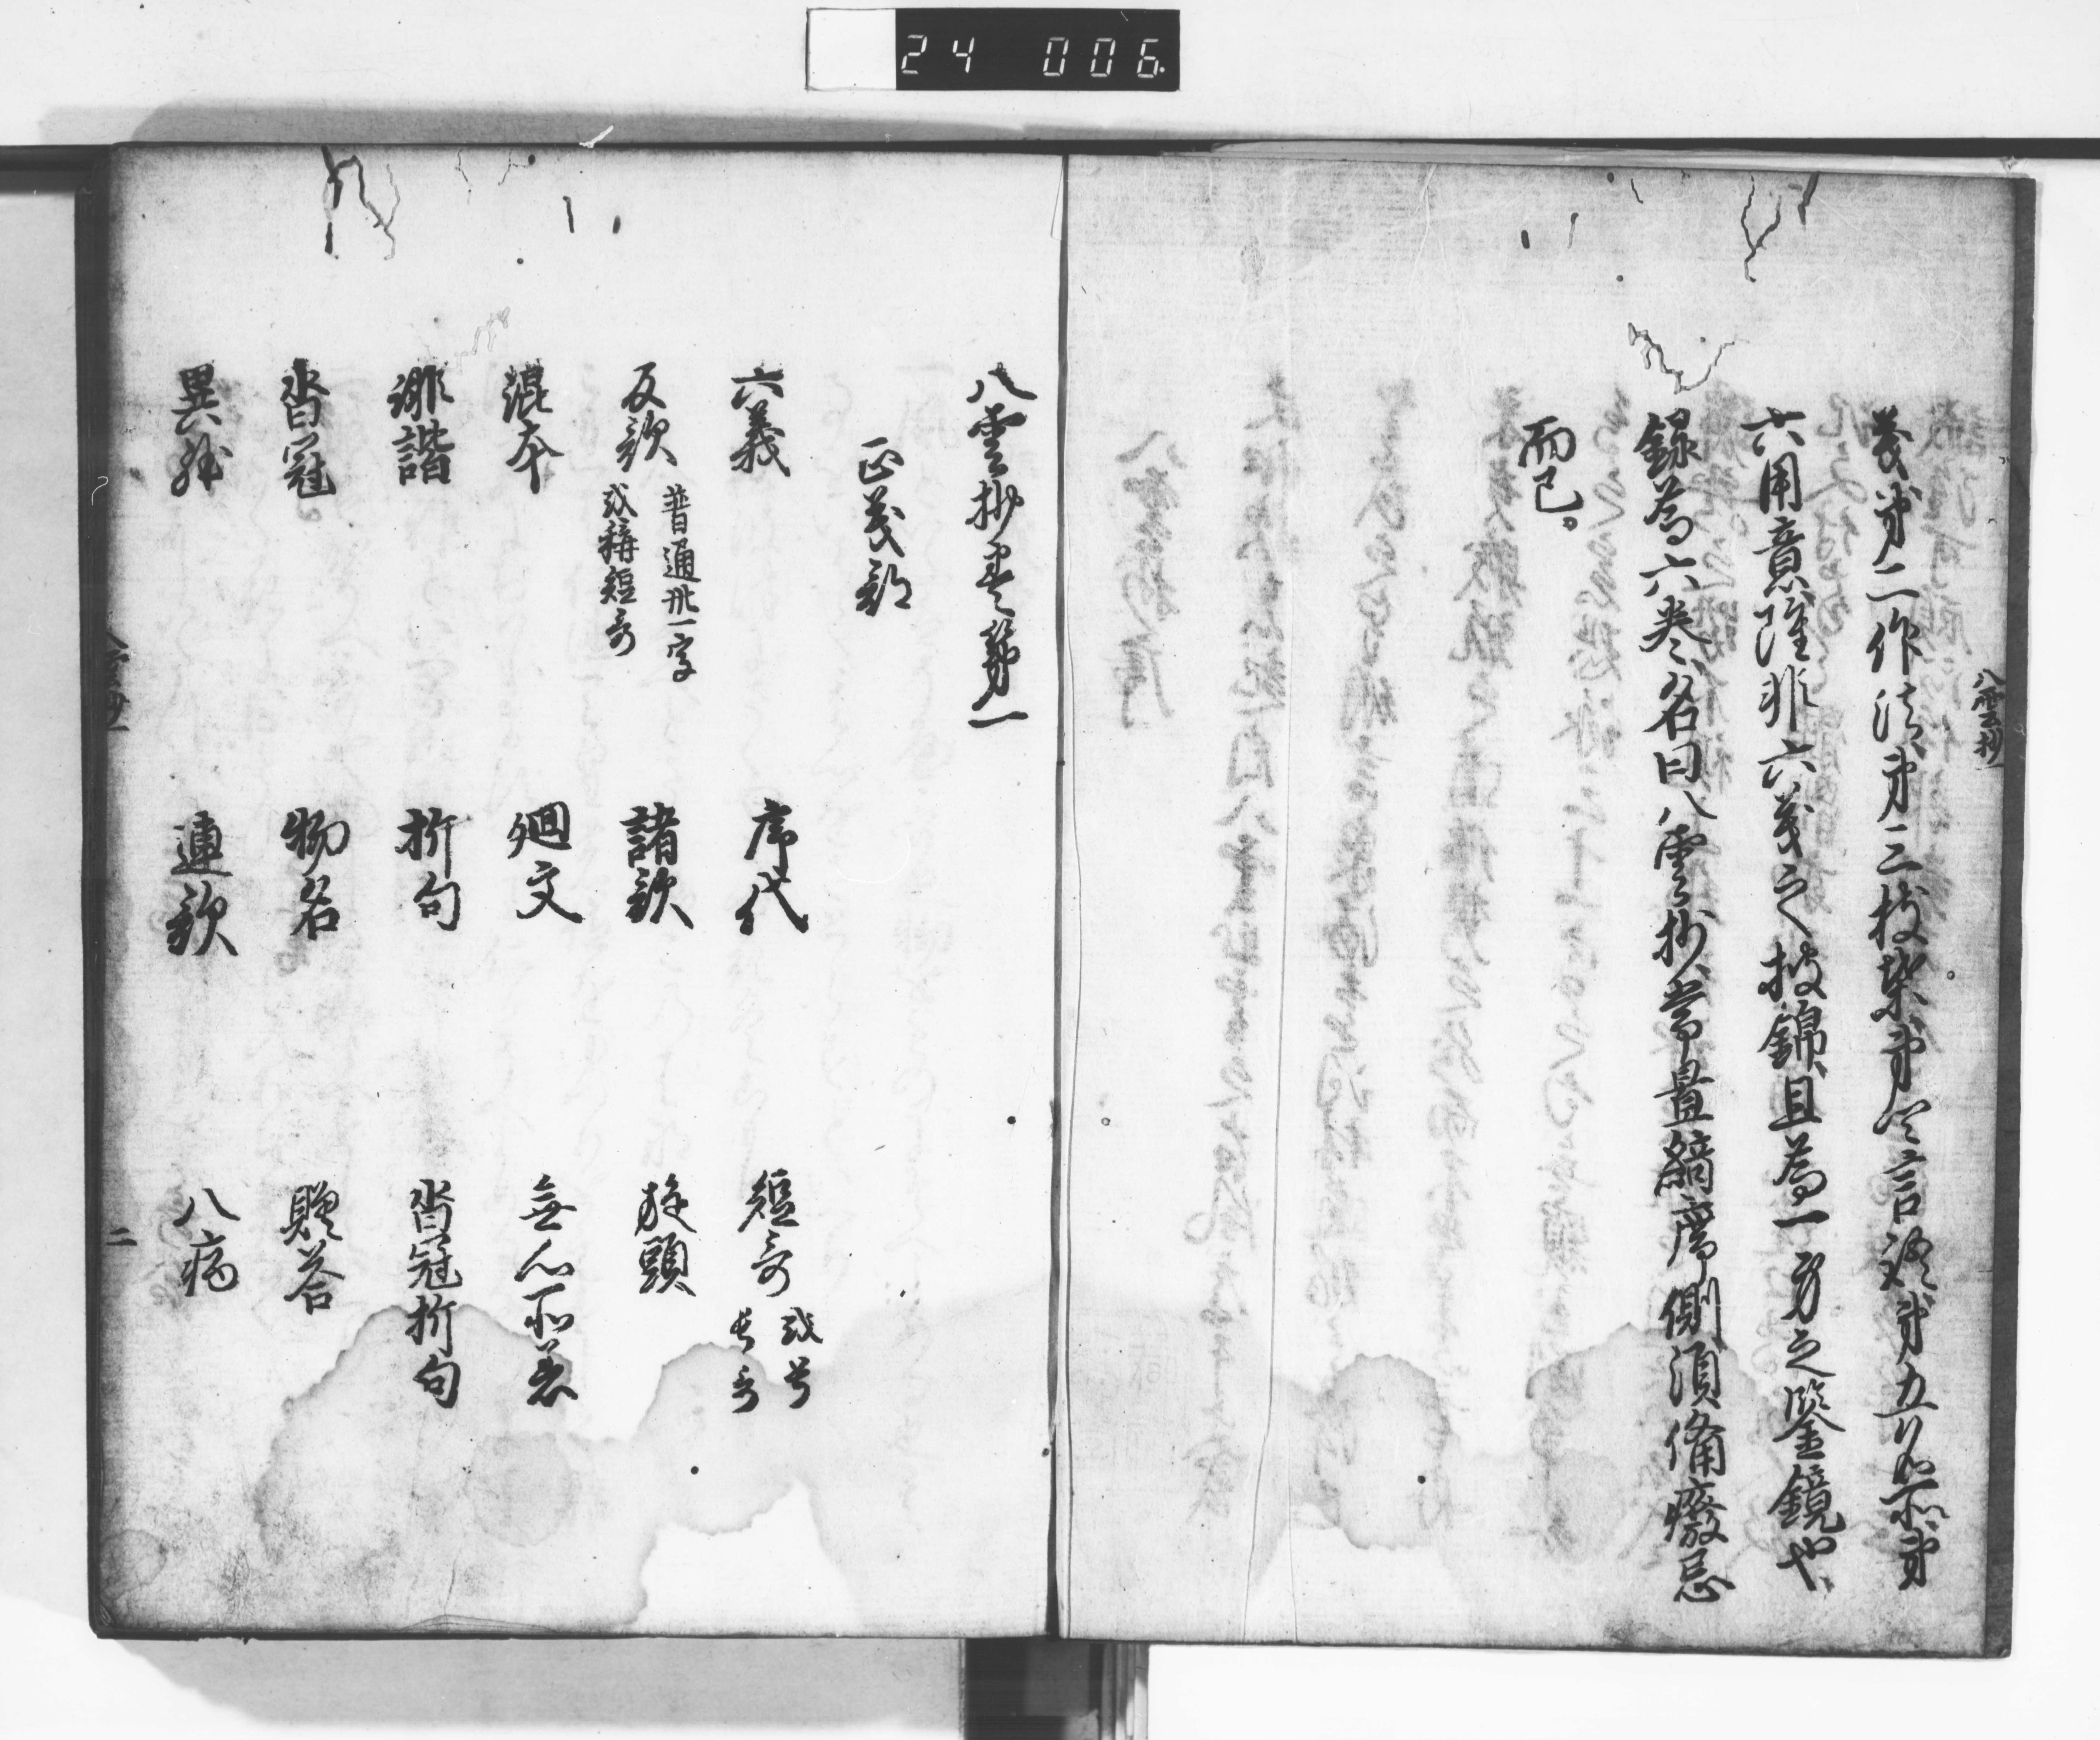 24 006
八雲抄一
義第二作法第三枝葉第四言語第五名所第
六用意隨非六義之披錦且為一身之鑒鏡也
録為六巻名曰八雲抄常置綺席側須備癈忘
而已。
八雲抄巻第一
正義部
六義 序代 短哥 或号長哥
反歌 普通卅一字或稱短哥 諸歌 旋頭
混本 廻文 無心所着
誹諧 折句 沓冠折句
沓冠 物名 贈答
異躰 連歌 八病
八雲抄一
二